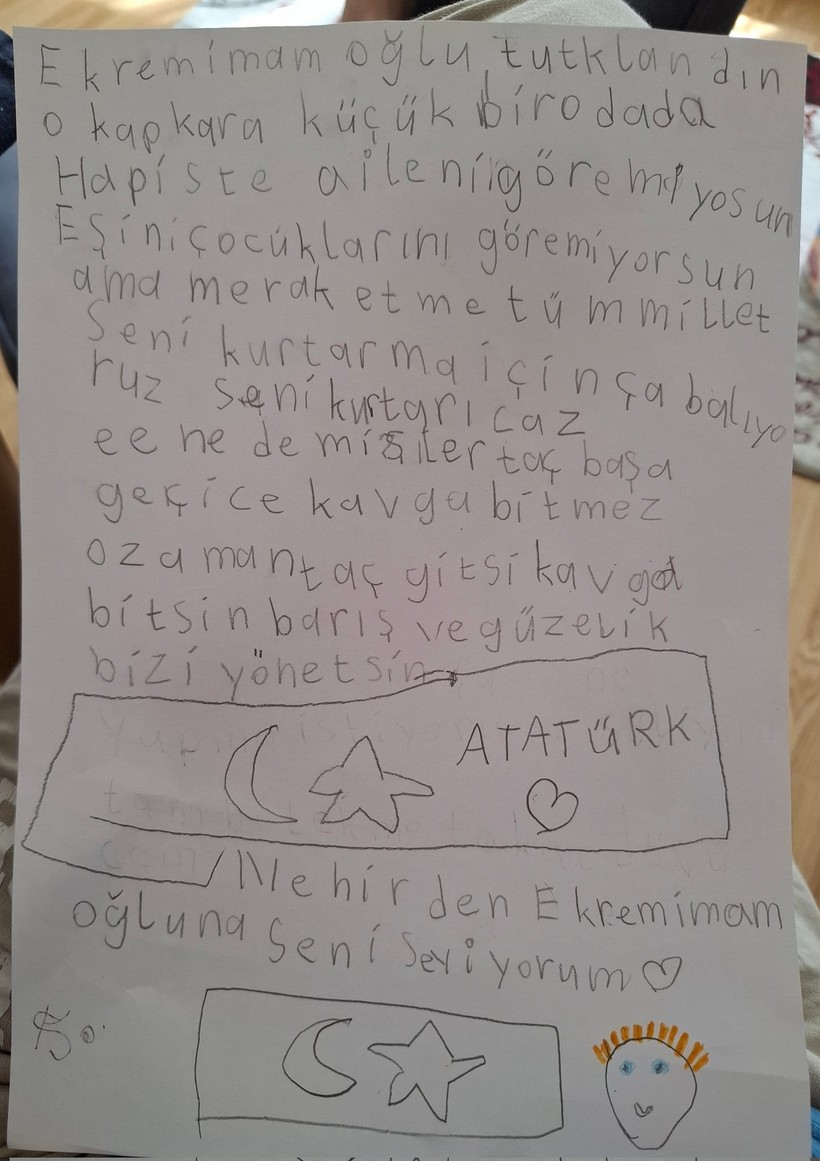 Ekremimam oğlu tutklandın
o kapkara küçük birodada
Hapiste aileniigöremiyosun
Eşiniçocuklarını göremiyorsun
ama merak etmetümmillet
Seni kurtarmaiçinçabalıyo
ruz senikurtarıcaz
ee ne demişler taç başa
geçice kavga bitmez
ozamantaç gitsikavga
bitsin barış vegüzelik
bizi yönetsin
ATATÜRK
Nehirden Ekremimam
oğluna Seni Seviyorum